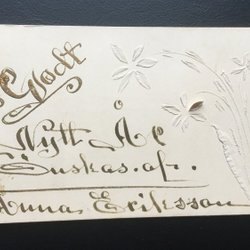 Godt
Nytt År
Önskas. af.
Anna Erikson